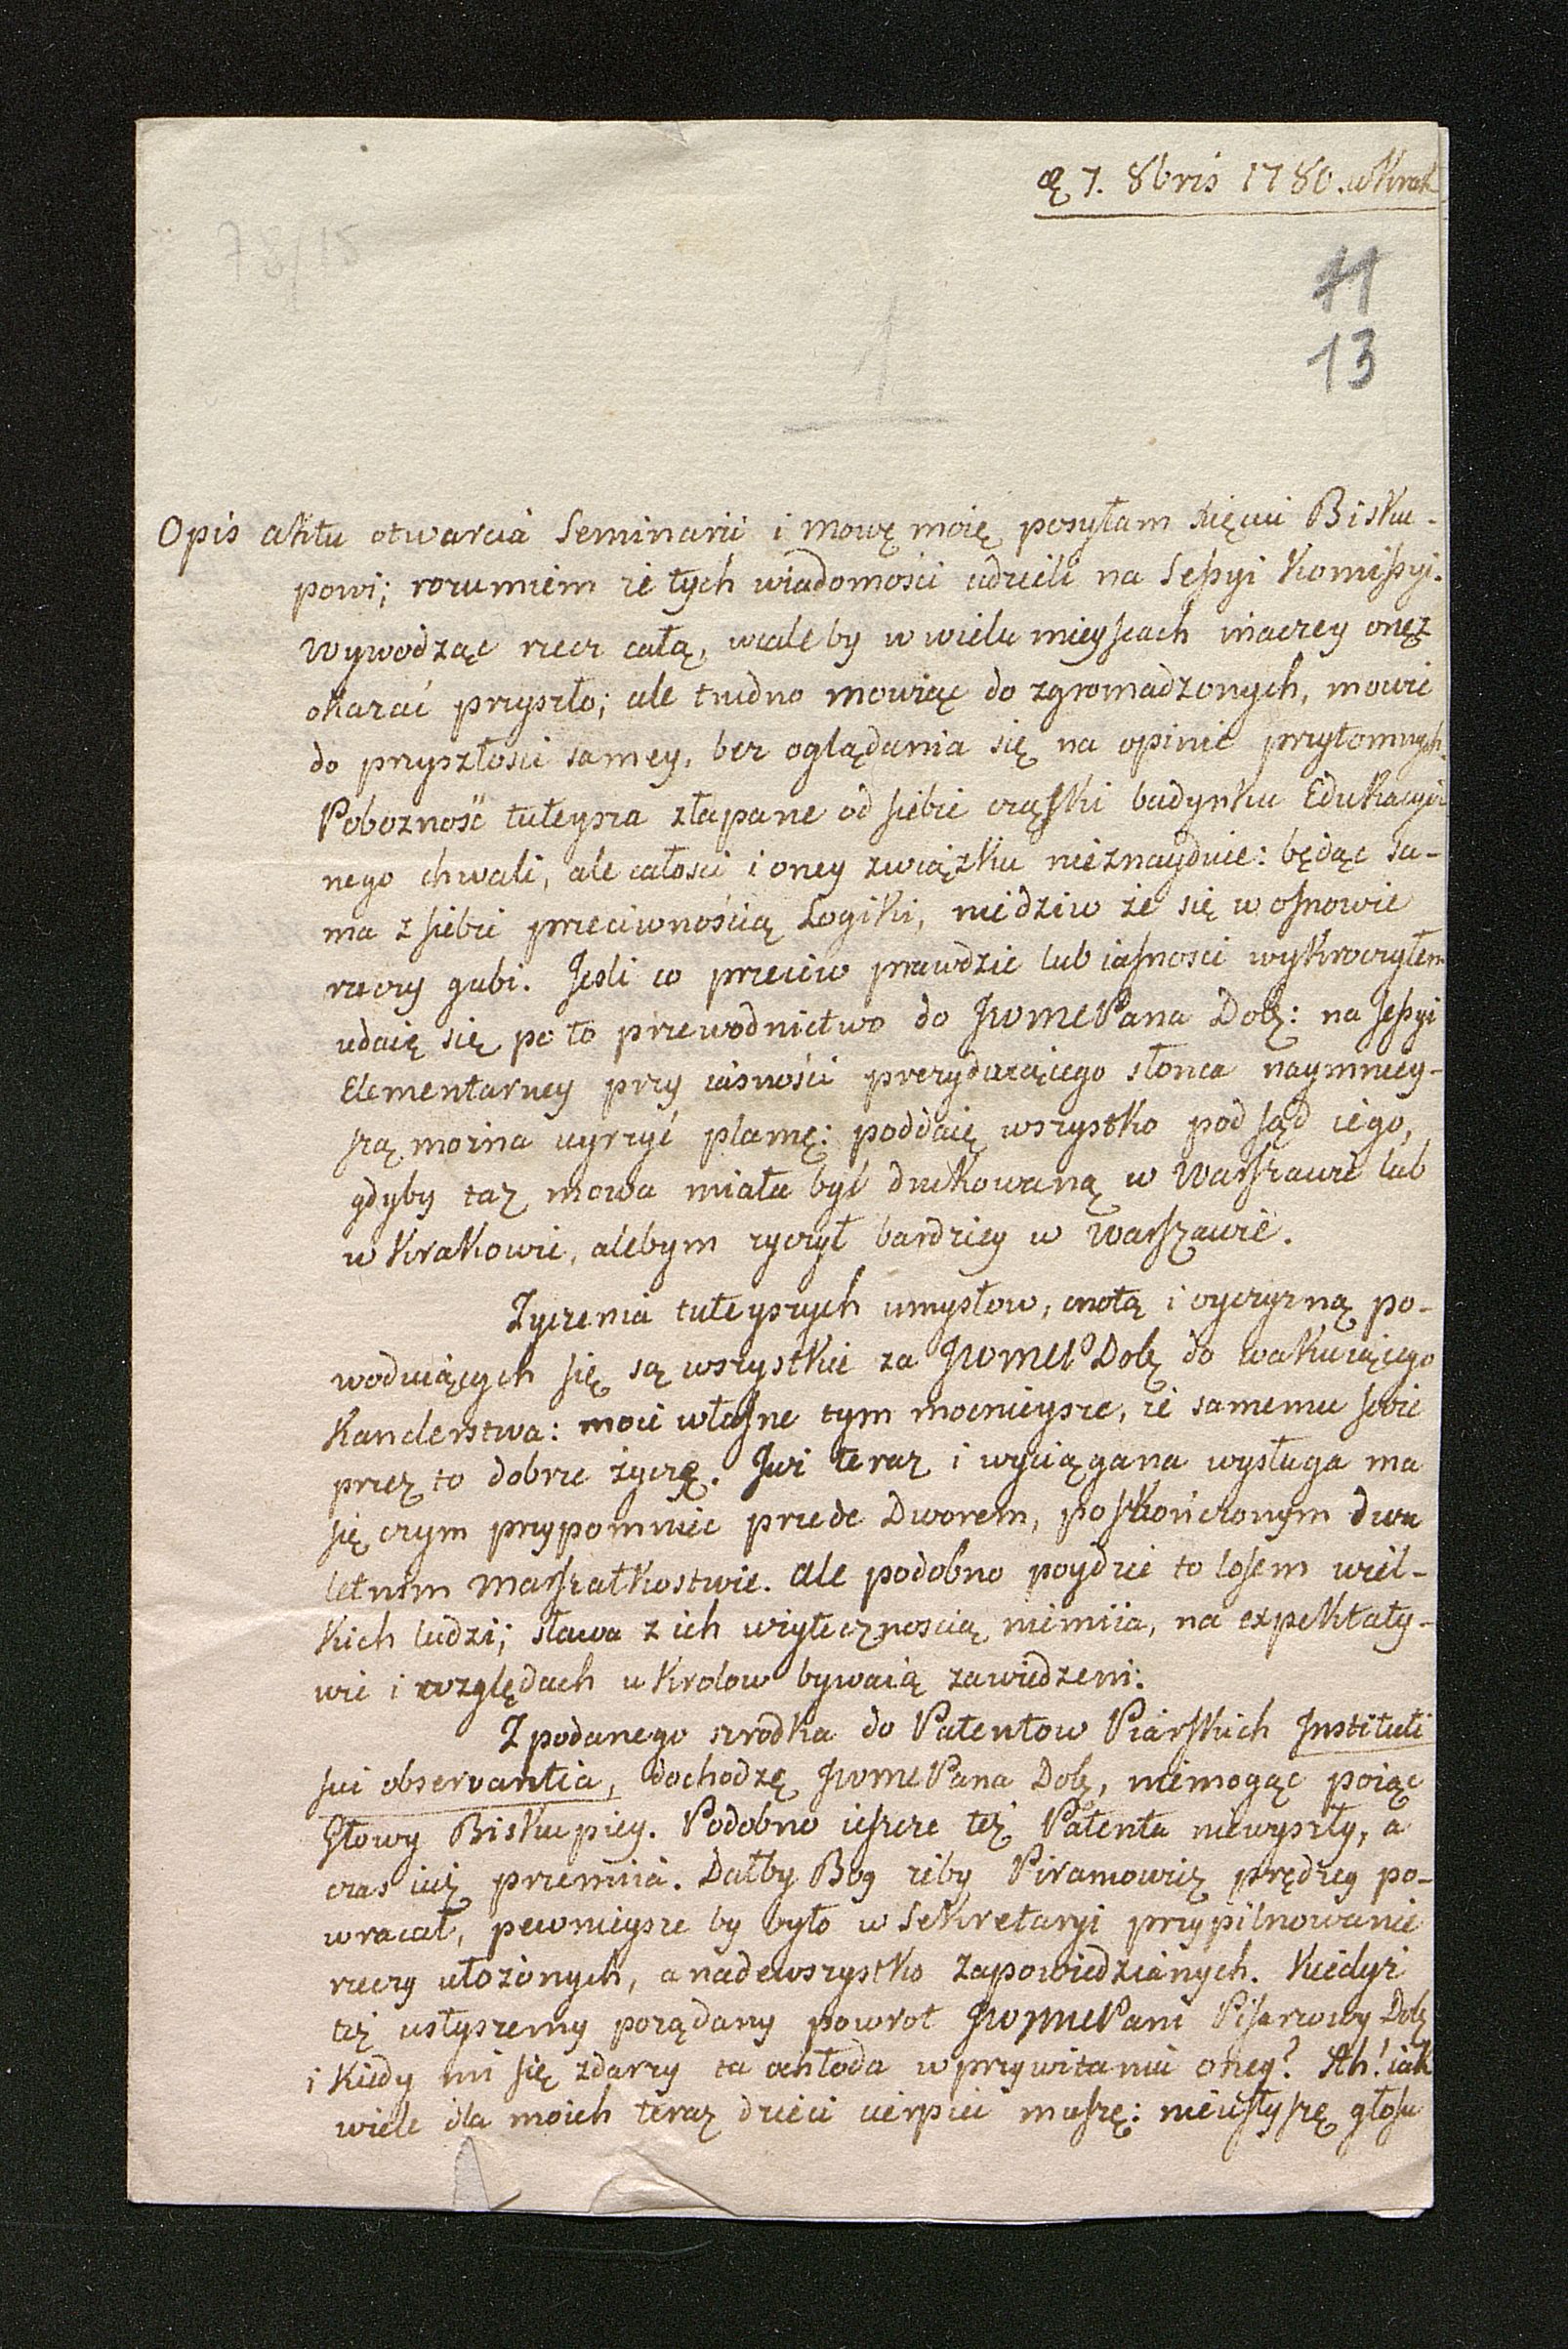 7. 8bris 1780. w Krak
78/15
11
13
1
Opis aktu otwarcia Seminarii i mowę moię posyłam Xięciu Bisku-
powi; rozumiem że tych wiadomości udzieli na Seſsyi Komiſsyi.
Wywodząc rzecz całą, wcale by w wielu mieyscach inaczey onęż
okazać przyszło; ale trudno mowiąc do zgromadzonych, mowić
do przyszłości samey, bez oglądania się na opinie przytomnych.
Pobozność tuteysza złapane od siebie cząſtki budynku Edukacyi-
nego chwali, ale całości i oney związku nieznayduie: będąc sa-
ma z siebie przeciwnością Logiki, niedziw że się w oſnowie
rzeczy gubi. Jeśli co przeciw prawdzie lub iaſnosci wykroczyłem
udaię się po to przewodnictwo do JWMCPana Dobͬ: na Seſsyi
Elementarney przy iasności prezyduiącego słońca naymniey-
szą można uyrzyć plamę: poddaię wszystko pod sąd iego,
gdyby taż mowa miała być drukowaną w Warszawie lub
w Krakowie, alebym zyczył bardziey w Warszawie.
Zyczenia tuteyszych umysłow, cnotą i oyczyzną po-
woduiących się są wszystkie za JWMCP Dobͬ do wakuiącego
Kanclerstwa: moie własne tym mocnieysze, że samemu sobie
przez to dobrze życzę. Juź teraz i wyciągana wysługa ma
się czym przypomnieć przede Dworem, po skończonym dwu
letnim Marszałkostwie. Ale podobno poydzie to losem wiel-
kich ludzi; sława z ich użytecznoscią niemiia, na expektaty-
wie i względach u Krolow bywaią zawiedzeni.
Z podanego szrodka do Patentow Piarskich Instituti
sui observantia, dochodzę JWMCPana Dobͬ, niemogąc poiąć
Głowy Biskupiey. Podobno ieszcze też Patenta niewyszły, a
czas iuż przemiia. Dałby Bog żeby Piramowicz prędzey po-
wracał, pewnieysze by było w Sekretaryi przypilnowanie
rzeczy ułożonych, a nadewszystko zapowiedzianych. Kiedyż
też usłyszemy porządany powrot JWJMCPani Pisarzowy Dobͬ
i kiedy mi się zdarzy ta ochłoda w przywitaniu oney? Ah! iak
wiele dla moich teraz dzieci cierpieć muszę: nieusłyszę głosu